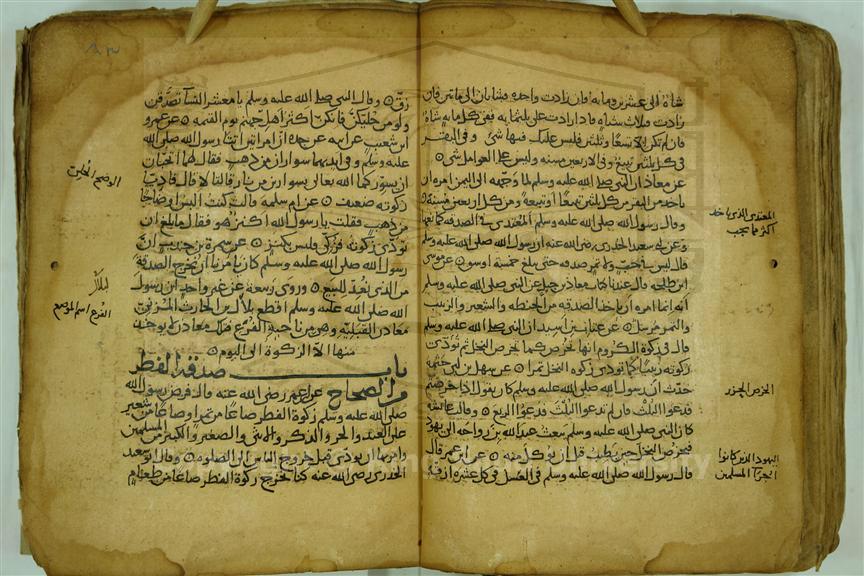 شاة الى عشرين ومايه فان زادت واحده فشاتان الى مايتين فان
زادت فثلاث شياه فاذا زادت على ثلثمايه ففى كل مايه شاة
فان لم تكن الا تسعا وثلثين فليس عليك فيها شى وفى البقر
فى كل ثلثين تبيع وفى الاربعين مسنه وليس على العوامل شى
عن معاذ ان النبى صلى الله عليه وسلم لما وجهه الى اليمن امره ان
ياخذ من البقر من كل ثلثين تبيعا او تبيعة ومن كل اربعين مسنة
وقال رسول الله صلى الله عليه وسلم المعتدى فى الصدقه كمانعها
وعن ابى سعيد الخدرى رضى الله عنه ان رسول الله صلى الله عليه وسلم
قال ليس فى حب ولا تمر صدقه حتى يبلغ خمسة اوسق عن موسى
ابن طلحه قال عندنا كتاب معاذ بن جبل عن النبى صلى الله عليه وسلم
انه انما امره ان ياخذ الصدقه من الحنطه والشعير والزبيب
والتمر مرسل عن عتاب بن اسيد ان النبى صلى الله عليه وسلم
قال فى زكوة الكروم انها تخرص كما تخرص النخل ثم تودى
زكوته زبيبا كما تودى زكوة النخل تمرا عن سهل بن ابى حثمه
حدث ان رسول الله صلى الله عليه وسلم كان يقول اذا خرصتم
فدعوا الثلث فان لم تدعوا الثلث فدعوا الربع وقالت عائشه
كان النبى صلى الله عليه وسلم يبعث عبد الله بن رواحه الى يهود
فيخرص النخل حين يطيب قبل ان يوكل منه عن ابن عمر قال
قال رسول الله صلى الله عليه وسلم فى العسل فى كل عشرة ازق
المعتدى الذى ياخذ
اكثر مما يجب
الخرص الحزر
اليهود الذين كانوا
المسلمين
زق وقال النبى صلى الله عليه وسلم يا معشر النسآ تصدقن
ولو من حليكن فانكن اكثر اهل جهنم يوم القيمه عن عمرو
ابن شعيب عن ابيه عن جده ان امراتين اتتا رسول الله صلى الله
عليه وسلم وفى ايديهما سواران من ذهب فقال لهما اتحبان
ان يسوركما الله تعالى بسوارين من نار قالتا لا قال فاديا
زكوته ضعيف عن ام سلمه قالت كنت البس اوضاحا
من ذهب فقلت يا رسول الله اكنز هو فقال ما بلغ ان
تودى زكوته فزكى فليس بكنز عن سمرة بن جندب ان
رسول الله صلى الله عليه وسلم كان يامرنا ان نخرج الصدقة
من الذى نعد للبيع وروى ربيعه عن غير واحد ان رسول
الله صلى الله عليه وسلم اقطع لبلال بن الحارث المزنى
معادن القبلية وهى من ناحية الفرع فتلك المعادن لا يوخذ
منها الا الزكوة الى اليوم
باب صدقة الفطر
من الصحاح عن ابن عمر رضى الله عنه قال فرض رسول الله
صلى الله عليه وسلم زكوة الفطر صاعا من تمر او صاعا من شعير
على العبد والحر والذكر والانثى والصغير والكبير من المسلمين
وامر بها ان تودى قبل خروج الناس الى الصلوة وقال ابو سعيد
الخدرى رضى الله عنه كنا نخرج زكوة الفطر صاعا من طعام
الوضح الحلى
الفرع اسم لموضع